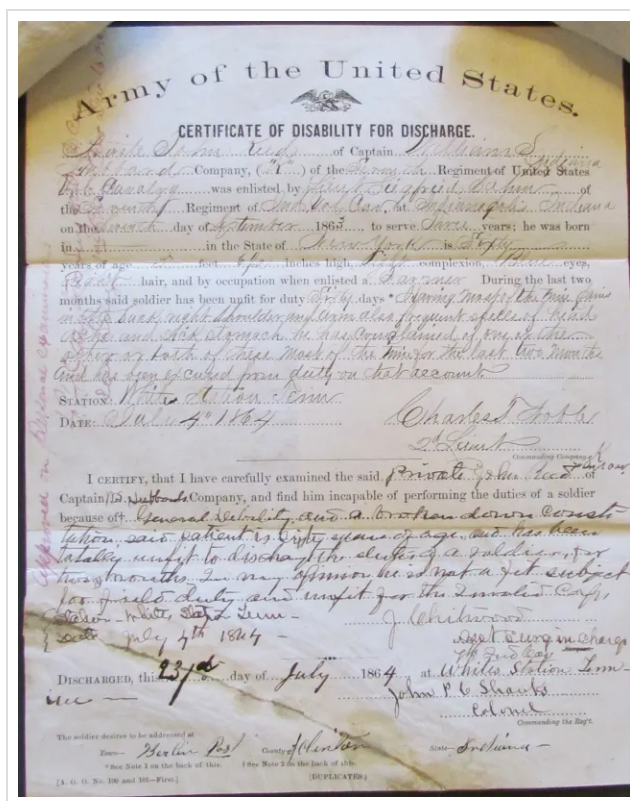 Army of the United States.
CERTIFICATE OF DISABILITY FOR DISCHARGE.
John Reed of Captain William S.
Hubbard Company, ("I") of the Regiment of United States Indiana
was enlisted by Lieut Siegfried of
the Regiment of Ind Vol Cav, at Indianapolis Indiana
on the day of September 1863, to serve three years; he was born
in in the State of New York is Fifty
years of age feet inches high, complexion, Blue eyes,
hair, and by occupation when enlisted a Farmer During the last two
months said soldier has been unfit for duty Sixty days * Having most of the time Pains
in the back right shoulder and arm also frequent spells of Head
Ache and sick stomach he has complained of one or the
other or both of these most of the time for the last two months
and has been excused from duty on that account
STATION: White Station Tenn
DATE: July 4" 1864 Charles T Noble
2d Lieut
Commanding Company
I CERTIFY, that I have carefully examined the said private John Reed of
Captain Hubbards Company, and find him incapable of performing the duties of a soldier
because of† General debility and a broken down consti-
tution said patient is fifty years of age and has been
totally unfit to discharge the duties of a soldier, for
two months In my opinion he is not a fit subject
for field duty and unfit for the Invalid Corps
Station - White Station Tenn - J Chitwood
Date July 4th 1864 - Asst Surg in charge
7th Ind Cav
DISCHARGED, this 23rd day of July 1864 at Whites Station Tenn-
John P C Shanks
Colonel
Commanding the Reg't.
The soldier desires to be addressed at
Town— Post County of Clinton State— Indiana -
* See Note 1 on the back of this. † See Note 2 on the back of this.
[A. G. O. No. 100 and 101—First.] (DUPLICATES)
Approved on examination